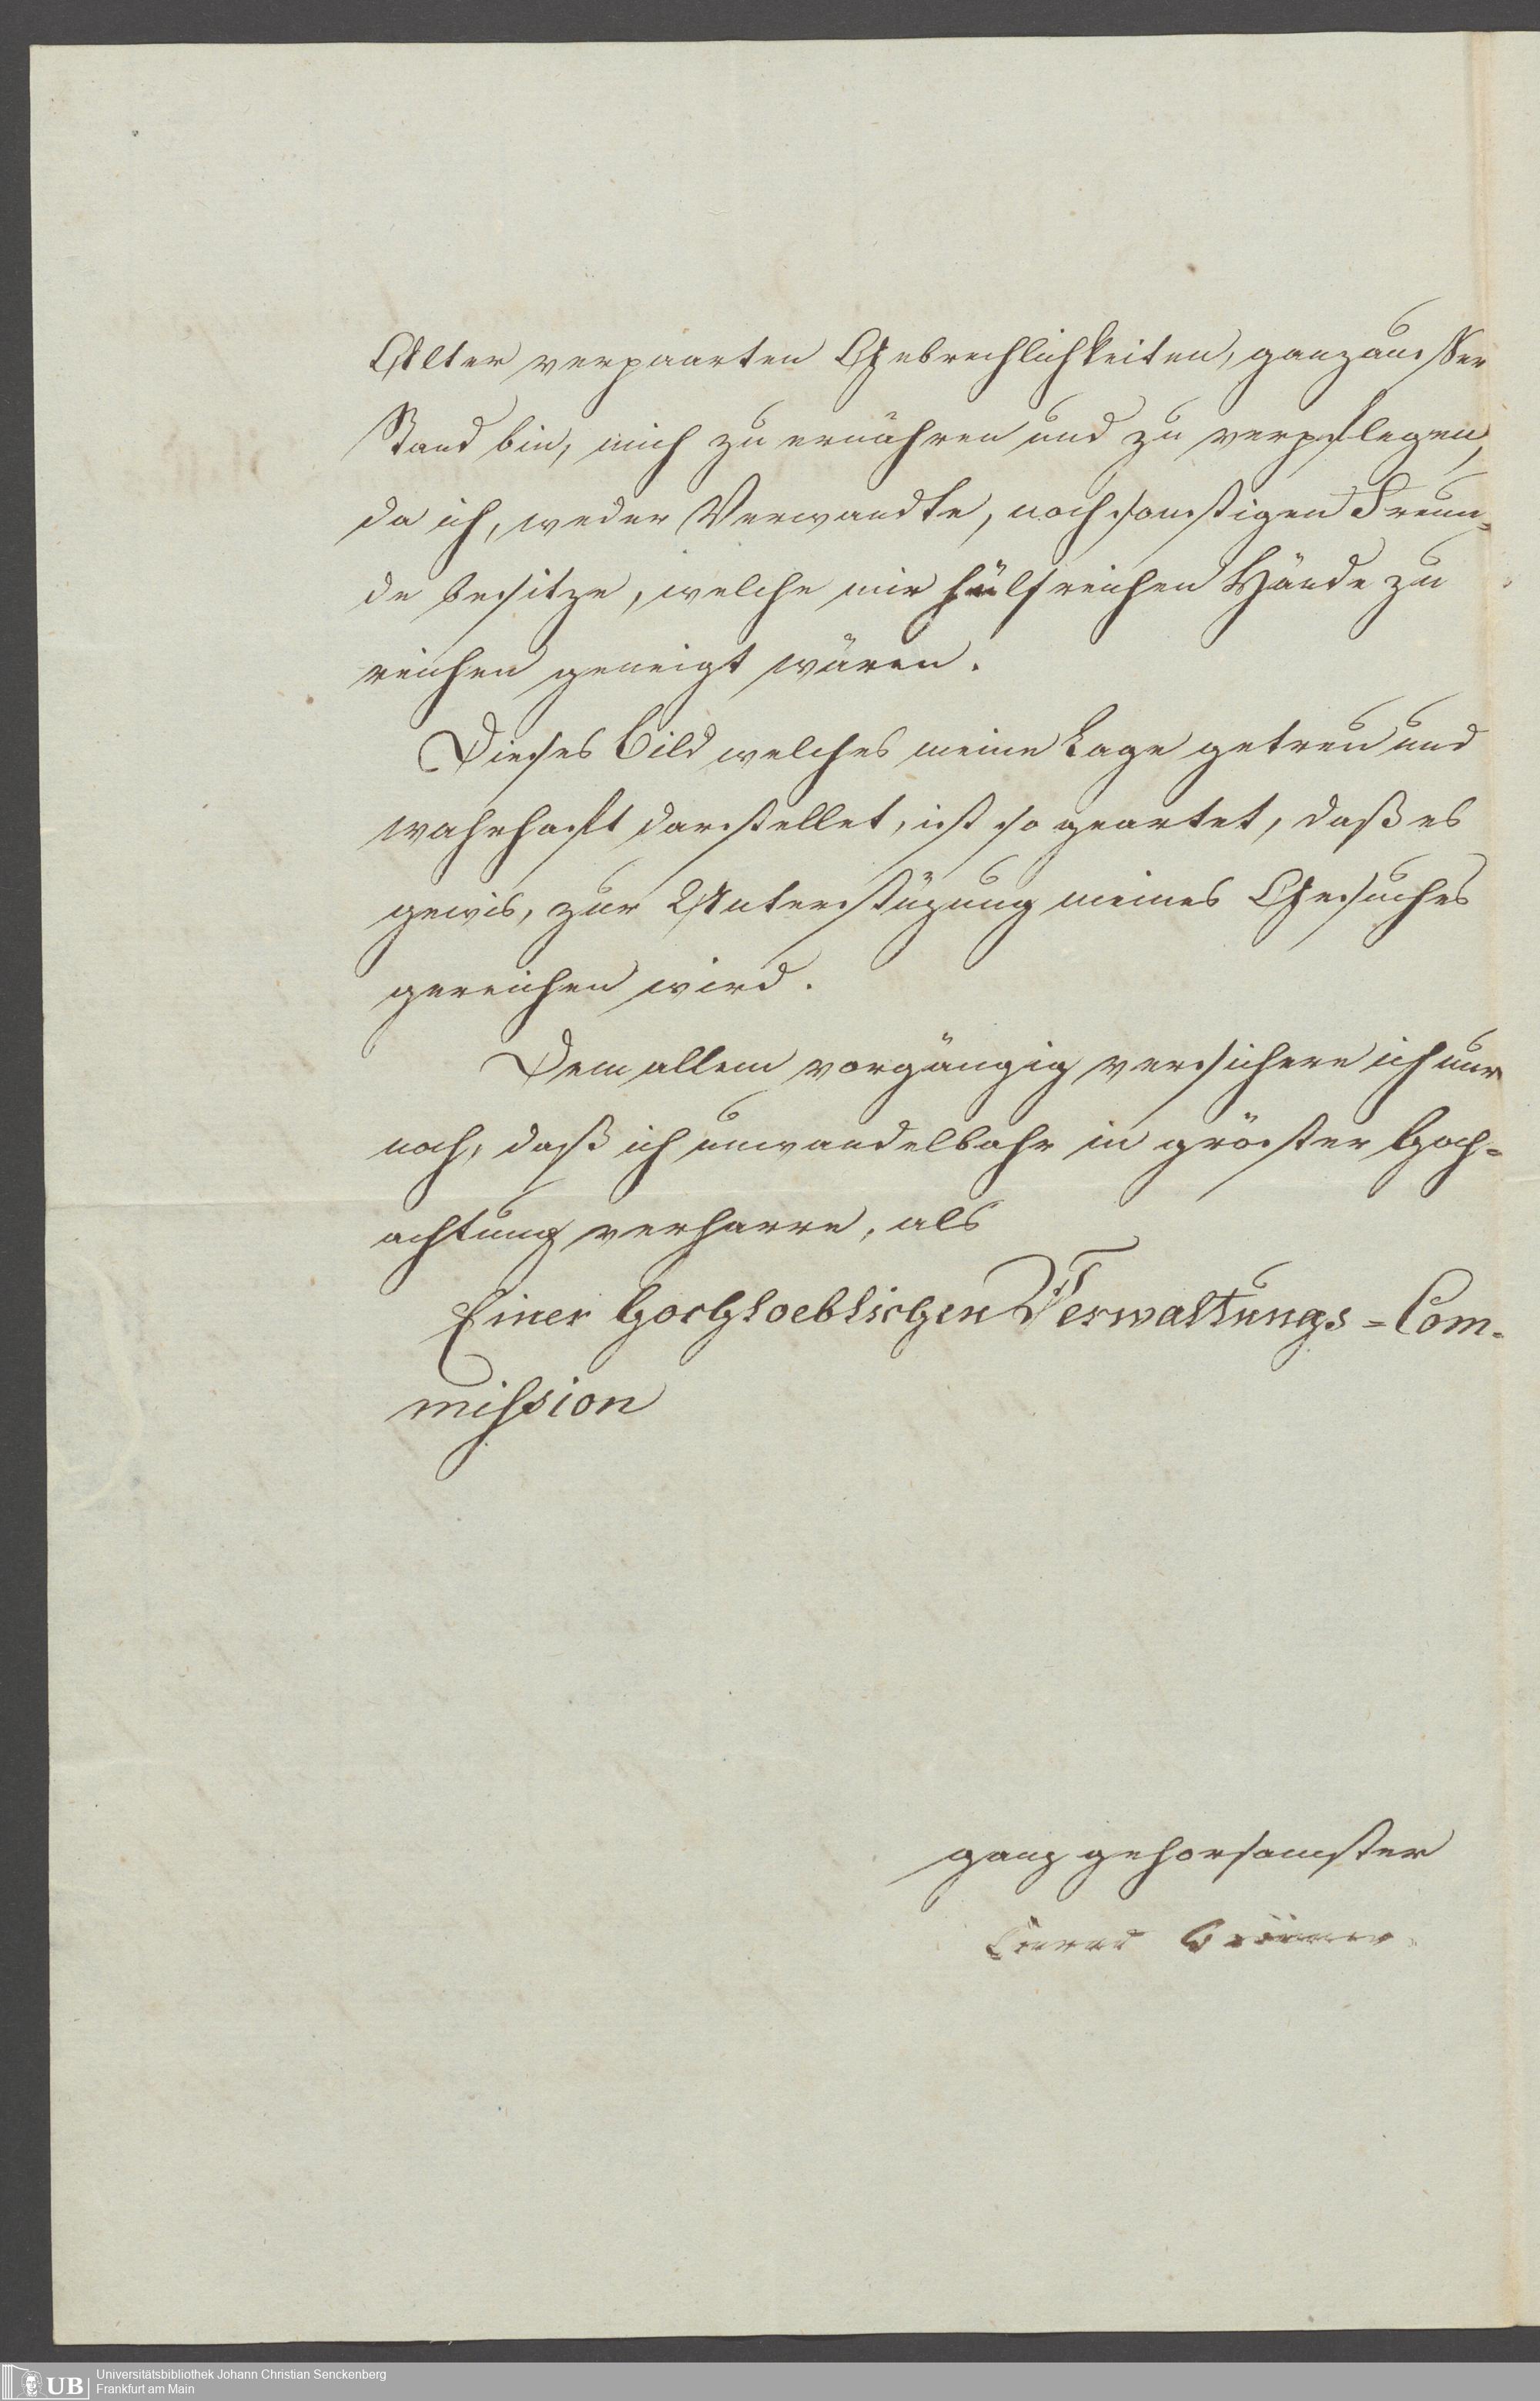 Alter verpaarten Gebrechlichkeiten, ganz ausser
Stand bin, mich zu ernähren und zu verpflegen,
da ich, weder Verwandte, noch sonstigen Freun-
de besitze, welche mir hülfreichen Hände zu
reichen geneigt wären.
Dieses Bild welches meine Lage getreu und
wahrhaft darstellet, ist so geartet, daß es
gewis, zur Unterstüzung meines Gesuches
gereichen wird.
Dem allem vorgängig versichere ich nur
noch, daß ich unwandelbahr in gröster Hoch-
achtung verharre, als
Einer Hochloeblichen Verwaltungs-Com-
mission
ganz gehorsamster
UB
Universitätsbibliothek Johann Christian Senckenberg
Frankfurt am Main